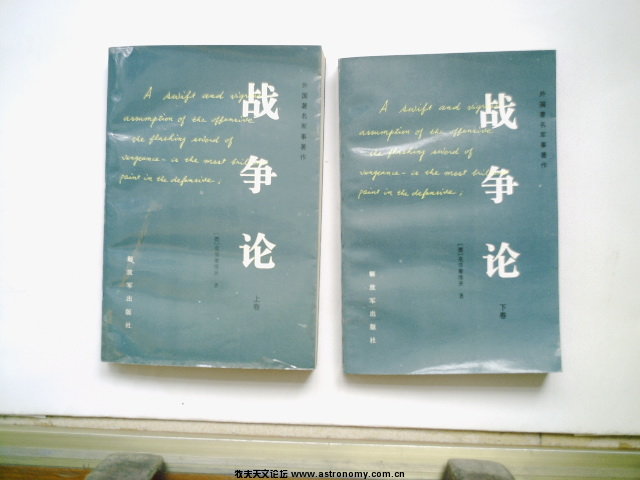 外国著名军事著作
战争论
A swift and vigorous
assumption of the offensive
the flashing sword of
vengeance - is the most bril
point in the defensive.
[德]克劳塞维茨 著
上卷
解放军出版社
外国著名军事著作
战争论
A swift and vigorous
assumption of the offensive
the flashing sword of
vengeance - is the most bril
point in the defensive.
[德]克劳塞维茨 著
下卷
解放军出版社
牧夫天文论坛 www.astronomy.com.cn